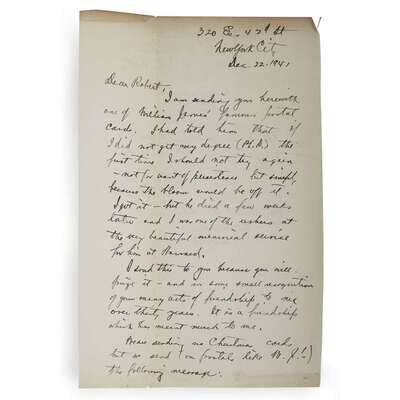 320 E. 42d St
New York City
Dec. 22. 1941
Dear Robert,
I am sending you herewith
one of William James' famous postal
cards. I had told him that if
I did not get my degree (Ph.D.) the
first time I should not try again
- not for want of persistence but simply
because the bloom would be off it.
I got it - but he died a few weeks
later and I was one of the ushers at
the very beautiful memorial service
for him at Harvard.
I send this to you because you will
prize it - and in some small recognition
of your many acts of friendship to me
over thirty years. It is a friendship
which has meant much to me.
Am sending no Christmas cards
but so send (on postals like W. J.!)
the following message: